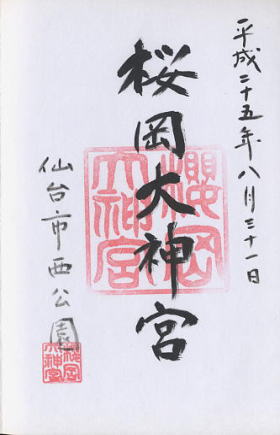 平成二十五年八月三十一日
桜岡大神宮
櫻岡大神宮
仙台市西公園
櫻岡大神宮